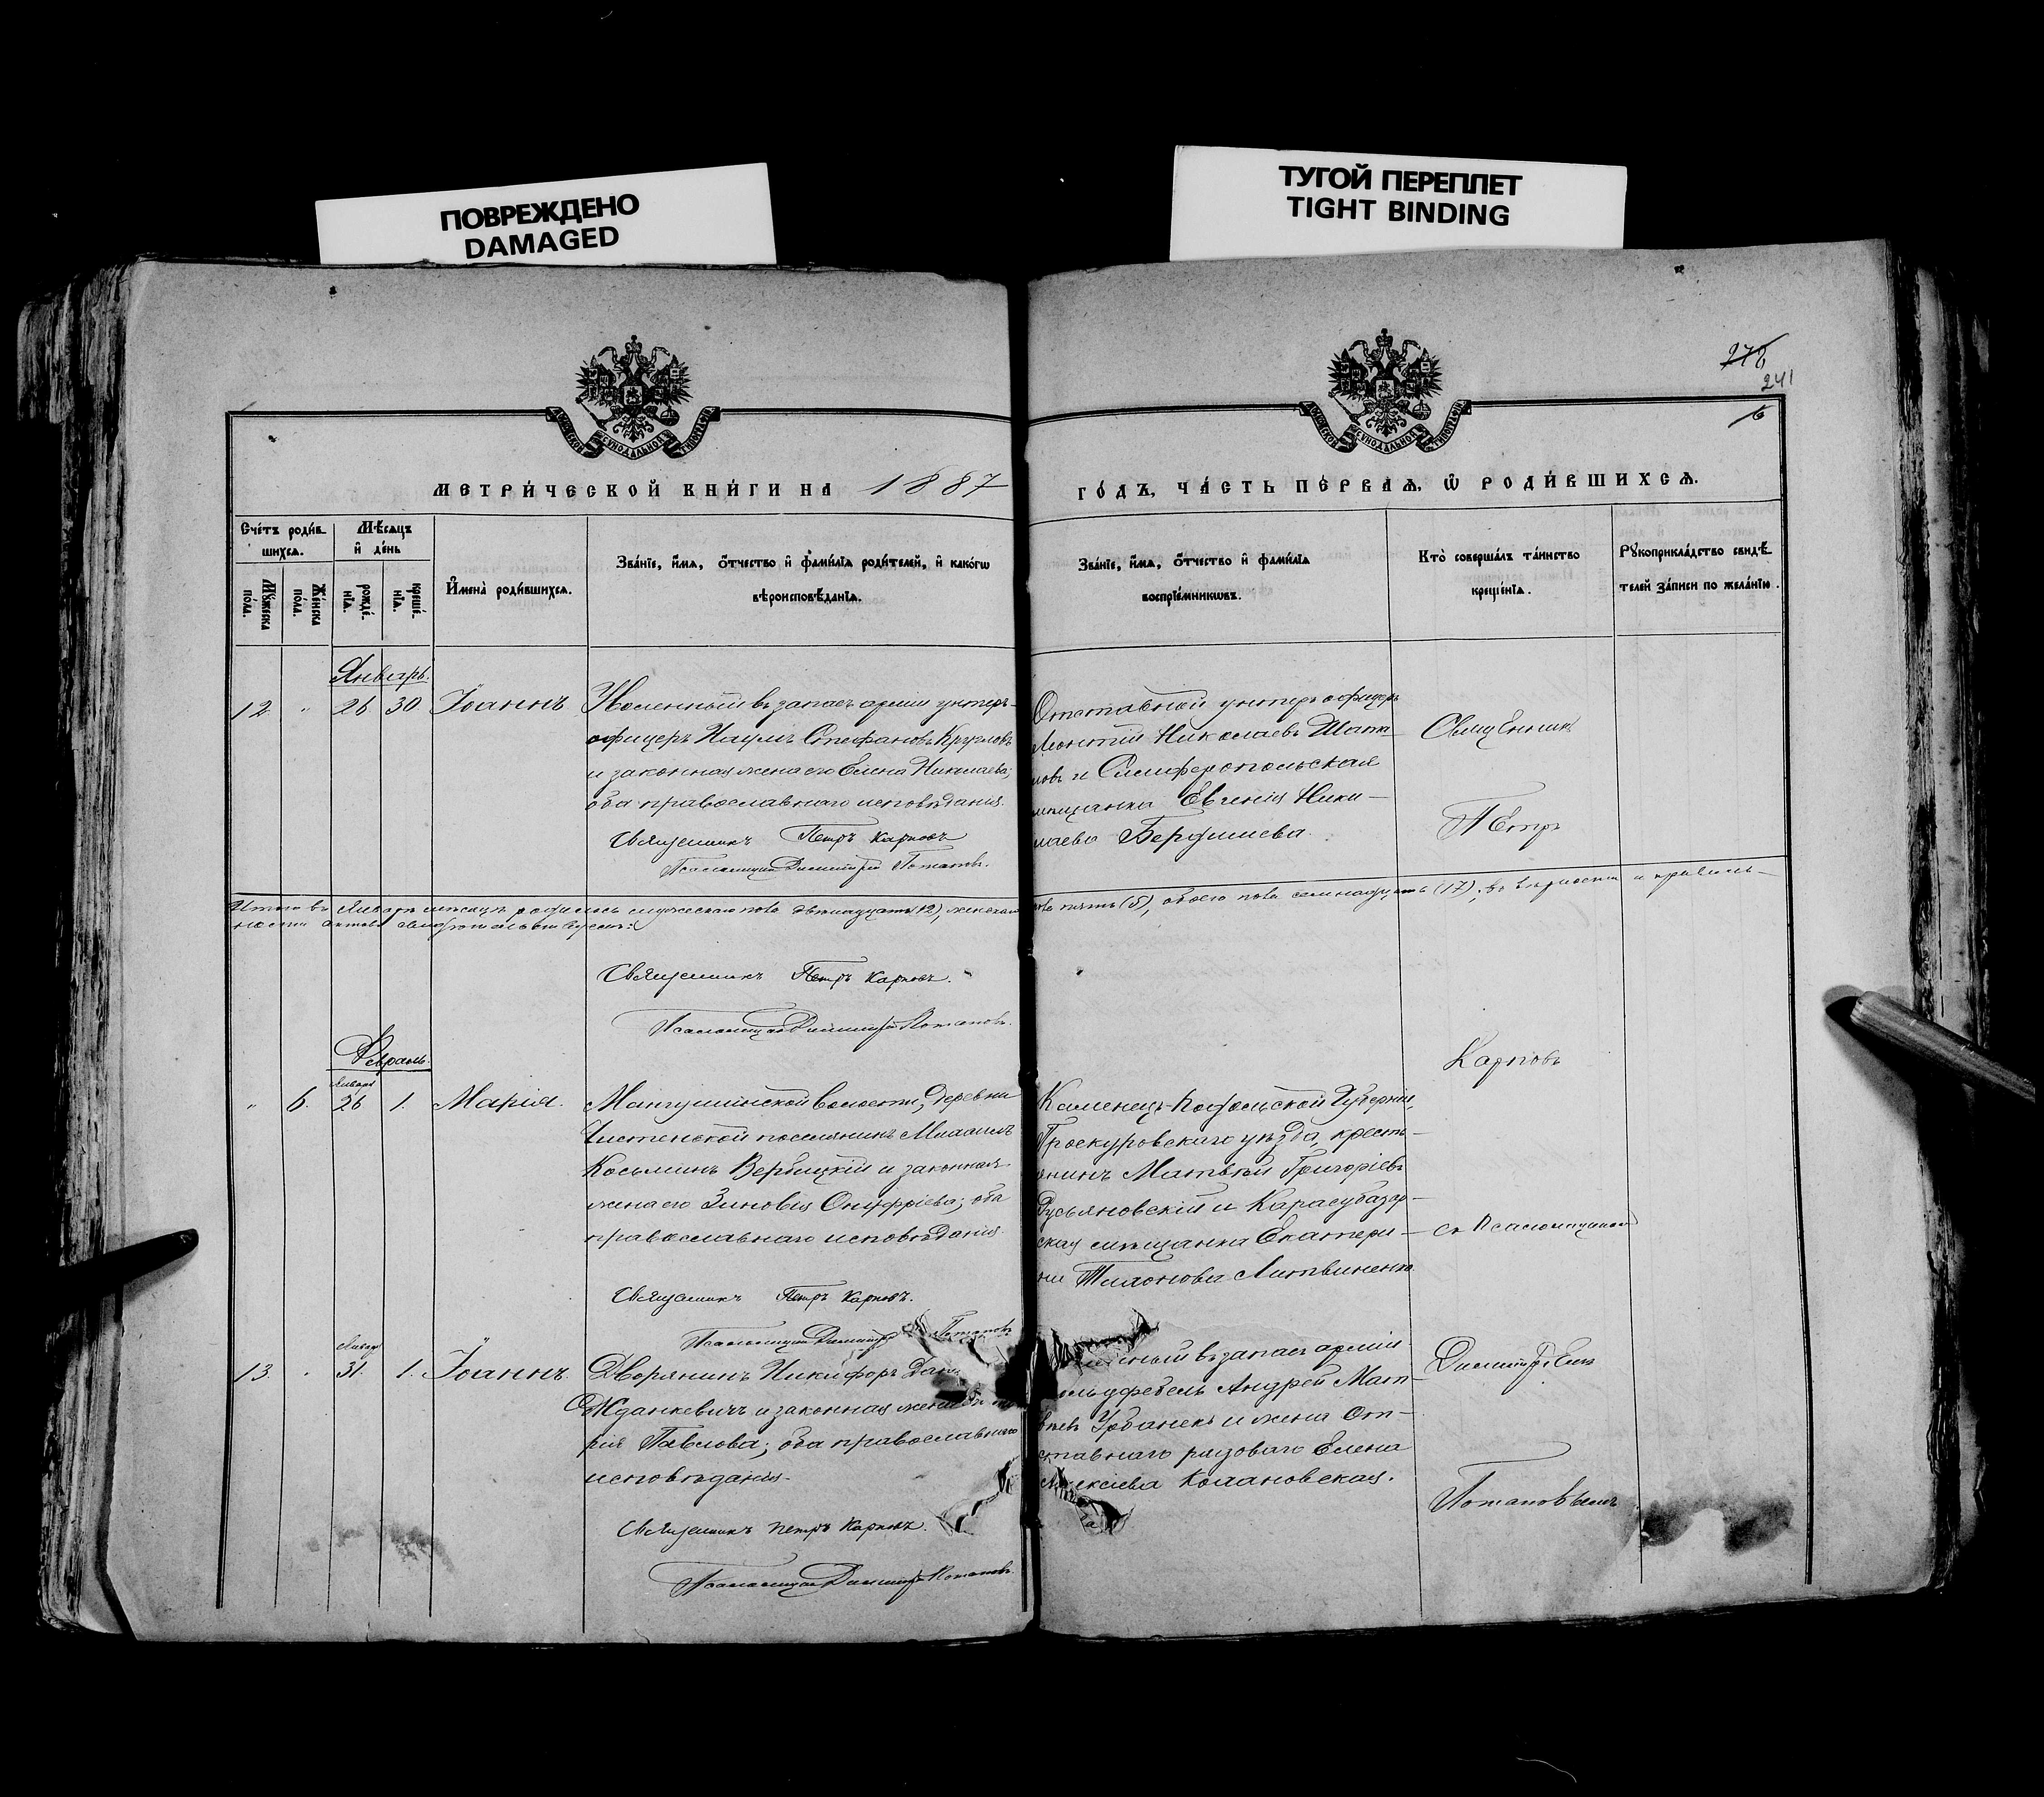 ПОВРЕЖДЕНО
DAMAGED
ТУГОЙ ПЕРЕПЛЕТ
TIGHT BINDING
241
МЕТРИ́ЧЕСКОЙ КНИ́ГИ НА 1887
ГО́ДЪ, ЧА́СТЬ ПЕ́РВАѦ, Ѿ РОДИ́ВШИХСѦ.
Сче́тъ роди́в
шихсѧ.
Мѣ́сѧцъ
и҆ де́нь
Мꙋ́жеска
по́ла.
Же́нска
по́ла.
рожде́
нїѧ.
креще́
нїѧ.
И҆мена̀ роди́вшихсѧ.
Зва́нїе, и҆́мѧ, ѻ҆́тчество и҆ фами́лїѧ роди́телей, и҆ како́гѡ
вѣроисповѣ́данїѧ.
Зва́нїе, и҆́мѧ, ѻ҆́тчество и҆ фами́лїѧ
воспрїе́мникѡвъ.
Кто̀ соверша́лъ та́инство
креще́нїѧ.
Рꙋкоприкла́дство свидѣ́
телей за́писи по жела́нїю.
Январь.
12. " 26 30 Іоаннъ
Уволенный въ запасъ арміи унтеръ-
офицеръ Наумъ Стефановъ Кругловъ
и законная жена его Елена Николаева;
оба православнаго исповѣданія.
Священникъ Петръ Карповъ
Псаломщикъ Димитрій Потаповъ.
Отставной унтеръ офицеръ
Леонтій Николаевъ
и Симферопольская
мѣщанка Евгенія Нико-
лаева
Священникъ
Петръ
Итого въ Январѣ мѣсяцѣ родилось мужескаго пола двѣнадцать (12), женскаго
пола пять (5), обоего пола семнадцать (17); въ вѣрности и правиль-
ности актовъ свидѣтельствуемъ:
Священникъ Петръ Карповъ.
Псаломщикъ Димитрій Потаповъ.
Февраль.
Января
" 6. 26 1. Марія.
Мангушинской волости, деревни
Чистенькой поселянинъ Михаилъ
Косьминъ Вербицкій и законная
жена его Зиновія Онуфріева; оба
православнаго исповѣданія.
Священникъ Петръ Карповъ.
Псаломщикъ Димитрій Потаповъ
Каменецъ-Подольской Губерніи,
Проскуровскаго уѣзда, кресть-
янинъ Матвѣй Григоріевъ
и Карасубазар-
ская мѣщанка Екатери-
на Литвиненко
Карповъ
съ Псаломщикомъ
Января
13. " 31. 1. Іоаннъ.
Дворянинъ Никифоръ
Жданкевичъ и законная жена
рія Павлова; оба православнаго
исповѣданія.
Священникъ Петръ Карповъ.
Псаломщикъ Димитрій Потаповъ.
въ запасъ арміи
Андрей Мат-
вѣевъ Урбанекъ и жена От-
ставнаго рядоваго Елена
Алексіева
Димитріемъ
Потаповымъ